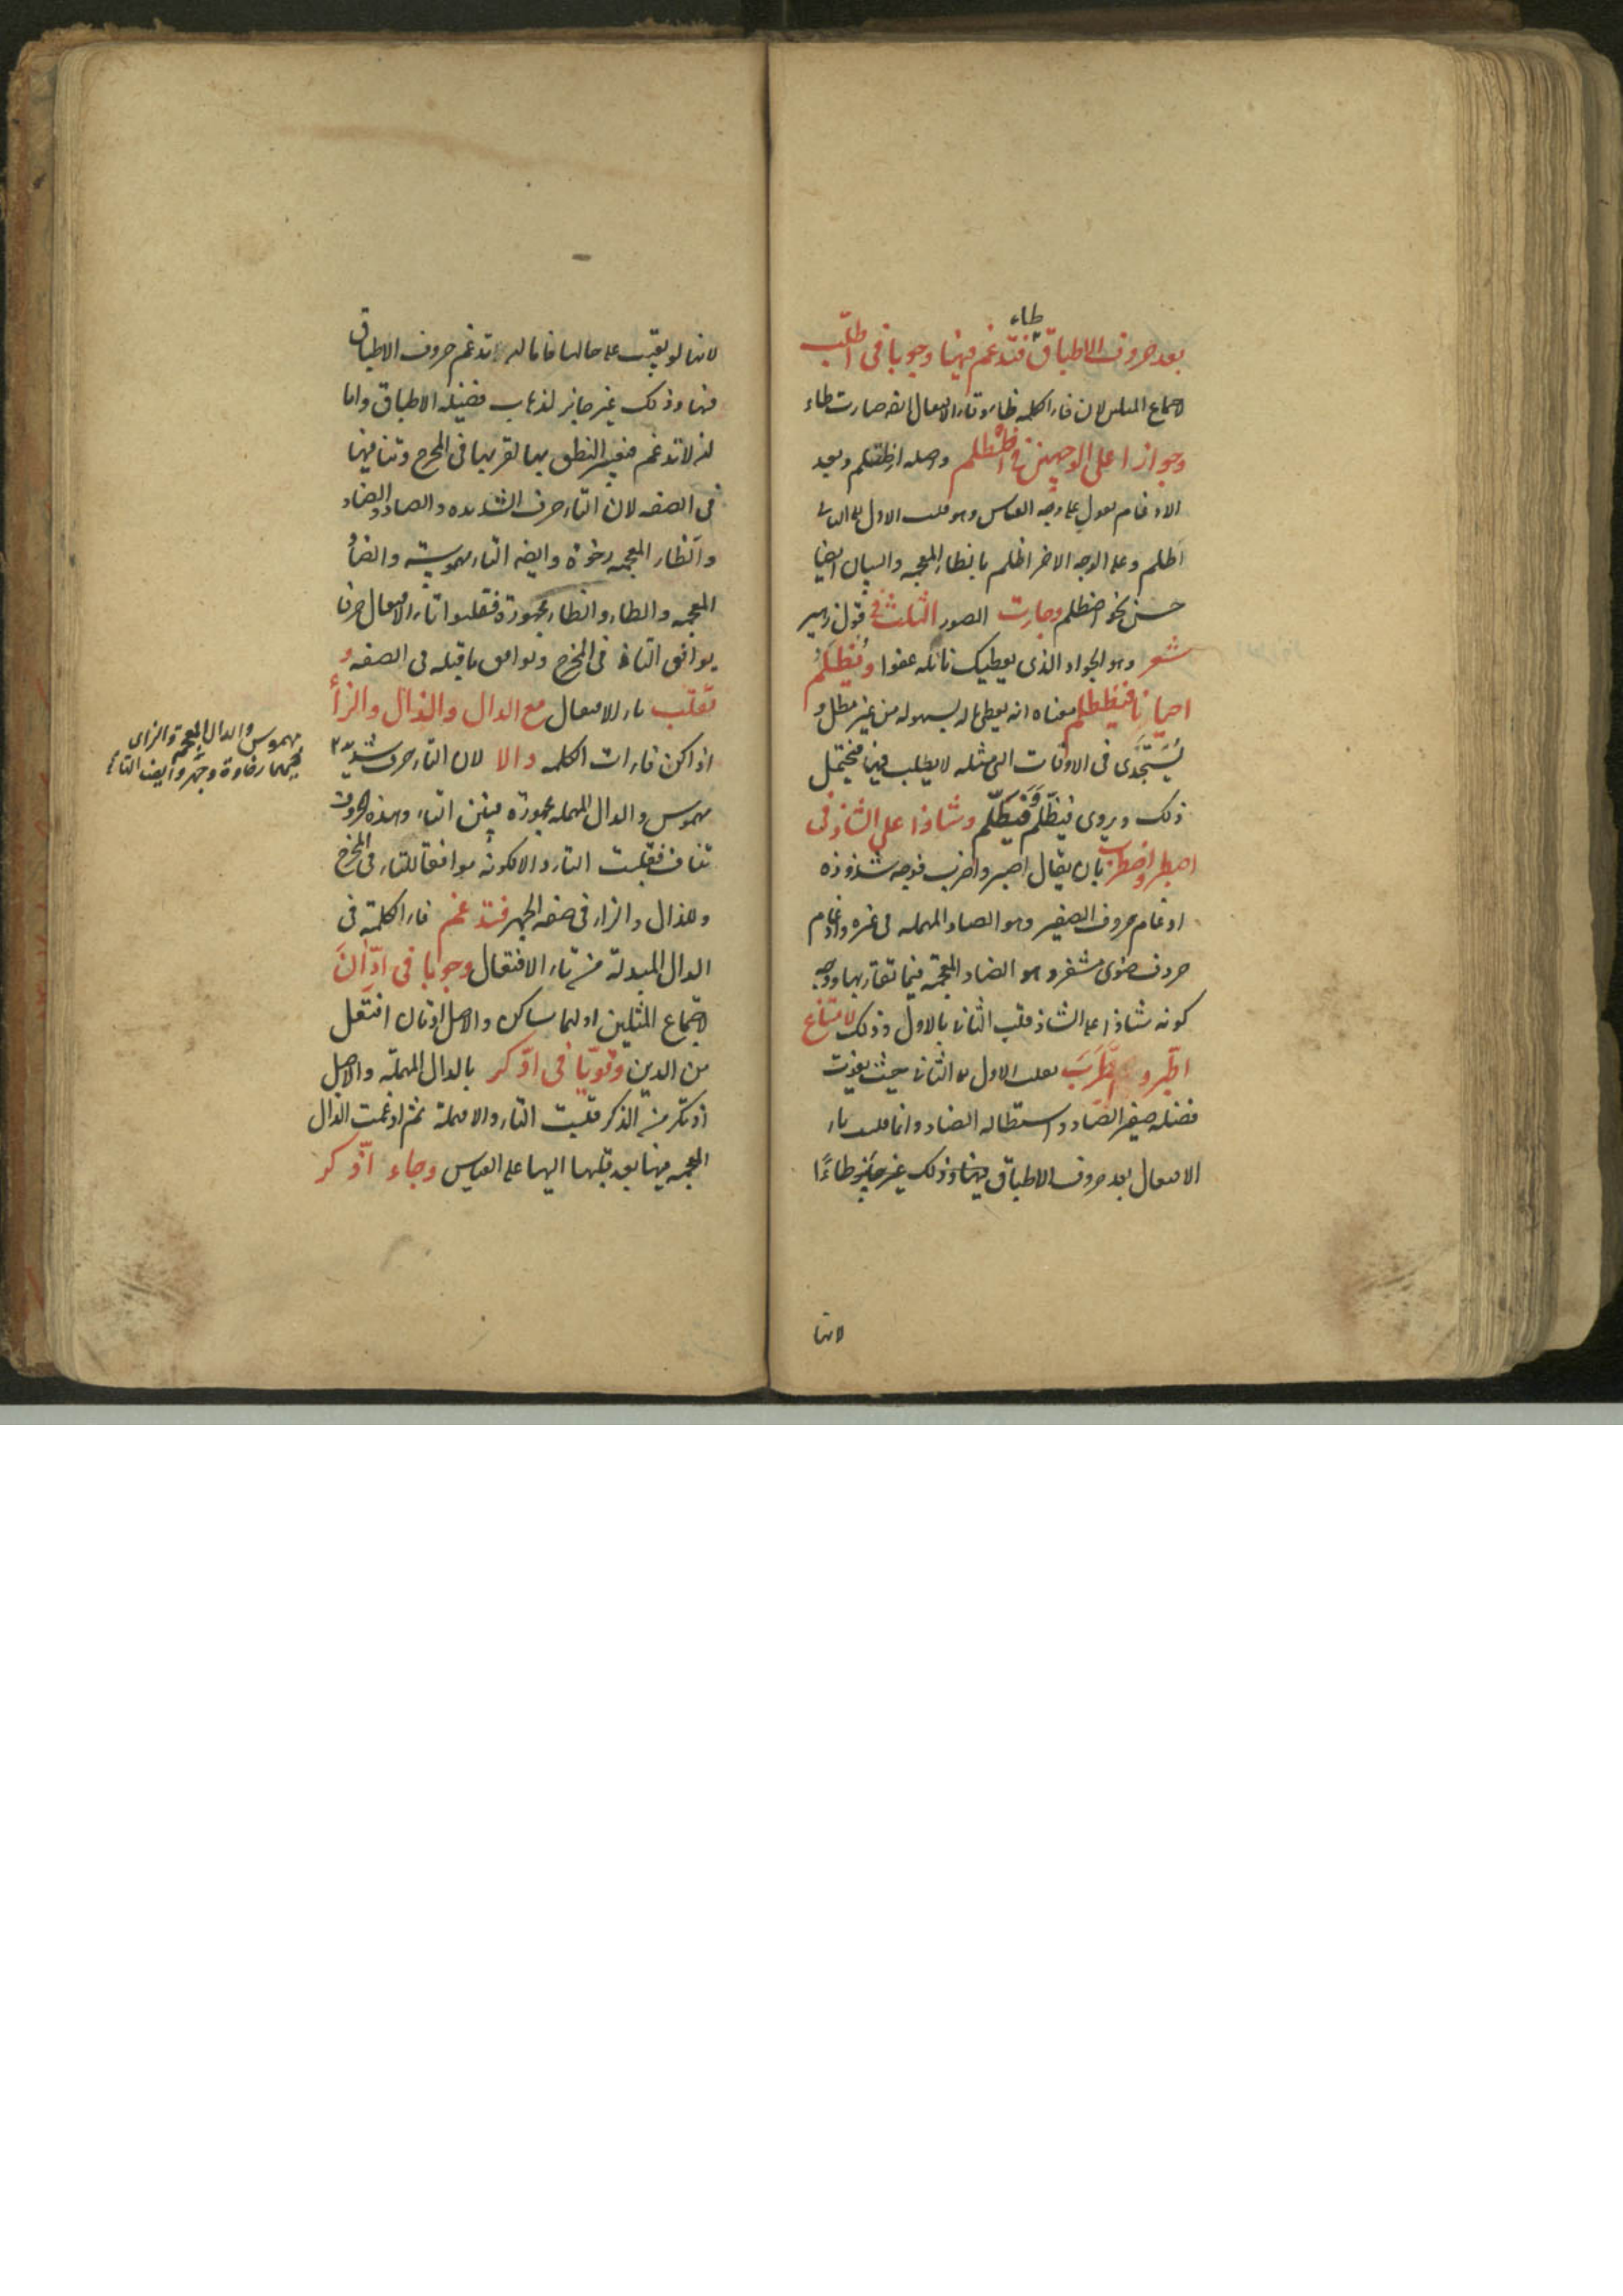 طاء
بعد حروف الاطباق فتدغم فيها وجوبا فى اطلب
لاجتماع المثلين لان فاء الكلمة طاء وتاء الافتعال ايضه صارت طاء
وجوازا على الوجهين فى اظطلم واصله اظتلم وبعد
الادغام تعول على وجه القياس وهو قلب الاول الى الثانى
اطلم وعلى الوجه الاخر اظلم بالظاء المعجمه والبيان ايضا
حسن نحو اظطلم وجاءت الصور الثلث فى قول زهير
شعر وهو الجواد الذى يعطيك نائله عفوا ويظلم
احيانا فيظطلم معناه انه يعطى ماله بسهوله من غير مطل و
يستجدى فى الاوقات التى مثله لا يطلب فيها فيحتمل
ذلك ويروى فيظلم وفيطلم وشاذا على الشاذ فى
اصطبر واضطرب بان يقال اصبر واضرب فوجه شذوذه
ادغام حروف الصفير وهو الصاد المهمله فى غيره وادغام
حروف ضوى مشفر وهو الضاد المعجمة فيما تقاربها ووجه
كونه شاذا على الشاذ قلب الثانى بالاول وذلك لامتناع
اطبر و اطرب بقلب الاول الى الثانى حيث يفوت
فضيلة صفير الصاد واستطاله الضاد وانما قلبت تاء
الافتعال بعد حروف الاطباق فيها وذلك غير جايز طاءا
لانها
لانها لو بقيت على حالها فاما ان تدغم حروف الاطباق
فيها وذلك غير جايز لذهاب فضيله الاطباق واما
ان لا تدغم فيعسر النطق بها لقربها فى المخرج وتنافيها
فى الصفه لان التاء حرف الشديده والصاد والضاد
والظاء المعجمه رخوة وايضه التاء مهموسية والضاء
المعجمه والطاء والظاء مجهورة فقلبوا تاء الافتعال حرفا
يوافق التاء فى المخرج ويوافق ما قبله فى الصفه و
تقلب تاء الافتعال مع الدال والذال والزاء
اذا كن فاءات الكلمه دالا لان التاء حرف شديدة
مهموس والدال المهمله مجهورة فبين التاء وهذه الحروف
تناف فقلبت التاء دالا لكونه موافقا للتاء فى المخرج
وللذال والزاء فى صفه الجهر فتدغم فاء الكلمة فى
الدال المبدلة من تاء الافتعال وجوبا فى ادان
لاجتماع المثلين اولهما ساكن والاصل ادتان افتعل
من الدين وقويا فى ادكر بالدال المهملة والاصل
اذتكر من الذكر فقلبت التاء دالا مهملة ثم ادغمت الذال
المعجمه فيها بعد قلبها اليها على القياس وجاء اذكر
مهموس والدال المعجمة والزاى
فيهما رخاوة وجهر وايضا التاء